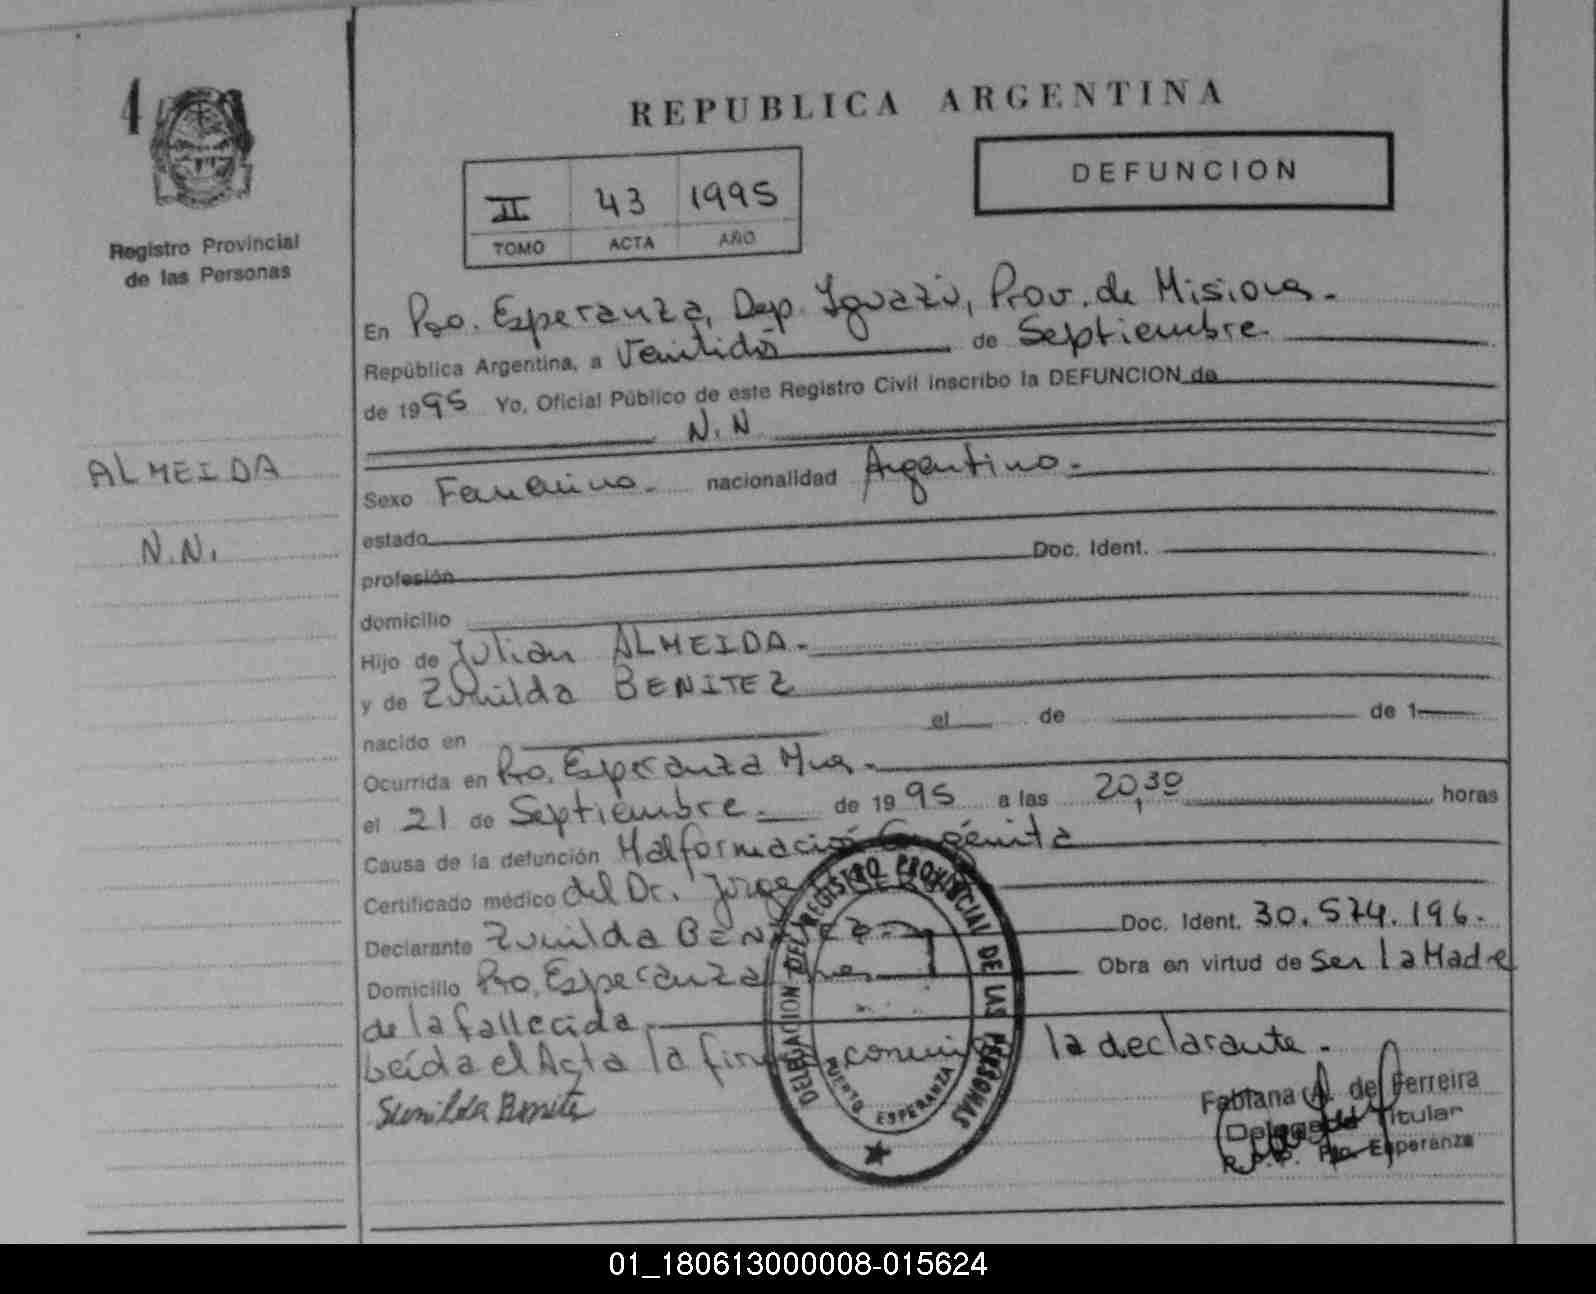 4
Registro Provincial
de las Personas
ALMEIDA
N.N.
REPUBLICA ARGENTINA
DEFUNCION
II 43 1995
TOMO ACTA AÑO
En Pto. Esperanza, Dep. Iguazú, Prov. de Misiones.-
República Argentina, a Veintidós de Septiembre.
de 1995 Yo, Oficial Público de este Registro Civil inscribo la DEFUNCION de
N.N
Sexo Femenino.- nacionalidad Argentino.-
estado
profesión Doc. Ident.
domicilio
Hijo de Julian ALMEIDA.-
y de Zunilda BENITEZ
nacido en el de de 1
Ocurrida en Pto. Esperanza Mnes.-
el 21 de Septiembre.- de 1995 a las 20,30 horas
Causa de la defunción Malformación Congénita
Certificado médico del Dr. Jorge
Declarante Zunilda BENITEZ.- Doc. Ident. 30.574.196.-
Domicilio Pto. Esperanza Mnes Obra en virtud de Ser la Madre
de la fallecida.-
Leída el Acta la firma conmigo la declarante.-
Sunilda Benite
DELEGACION DEL REGISTRO PROVINCIAL DE LAS PERSONAS
PUERTO ESPERANZA
Fabiana A. de Ferreira
Delegada Titular
R.P.P. Pto. Esperanza
01_180613000008-015624